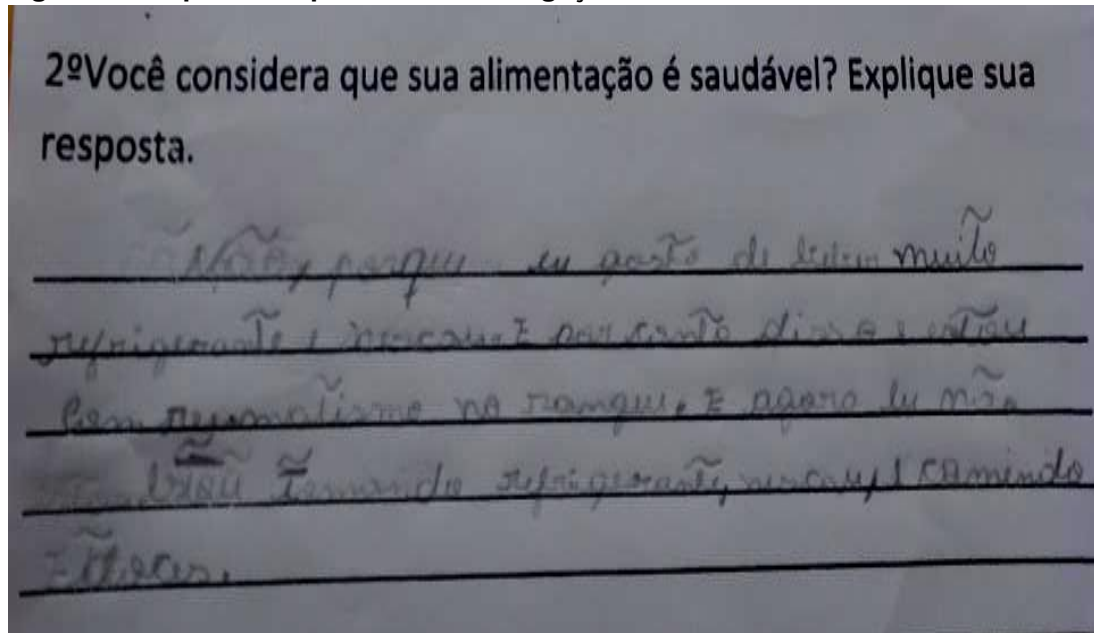 2ºVocê considera que sua alimentação é saudável? Explique sua
resposta.
Não, porque eu gosto de muito
refrigerante e nescau. E por conta disso estou
com reumatismo no sangue. E agora eu não
estou tomando refrigerante, nescau, e comendo
doces.